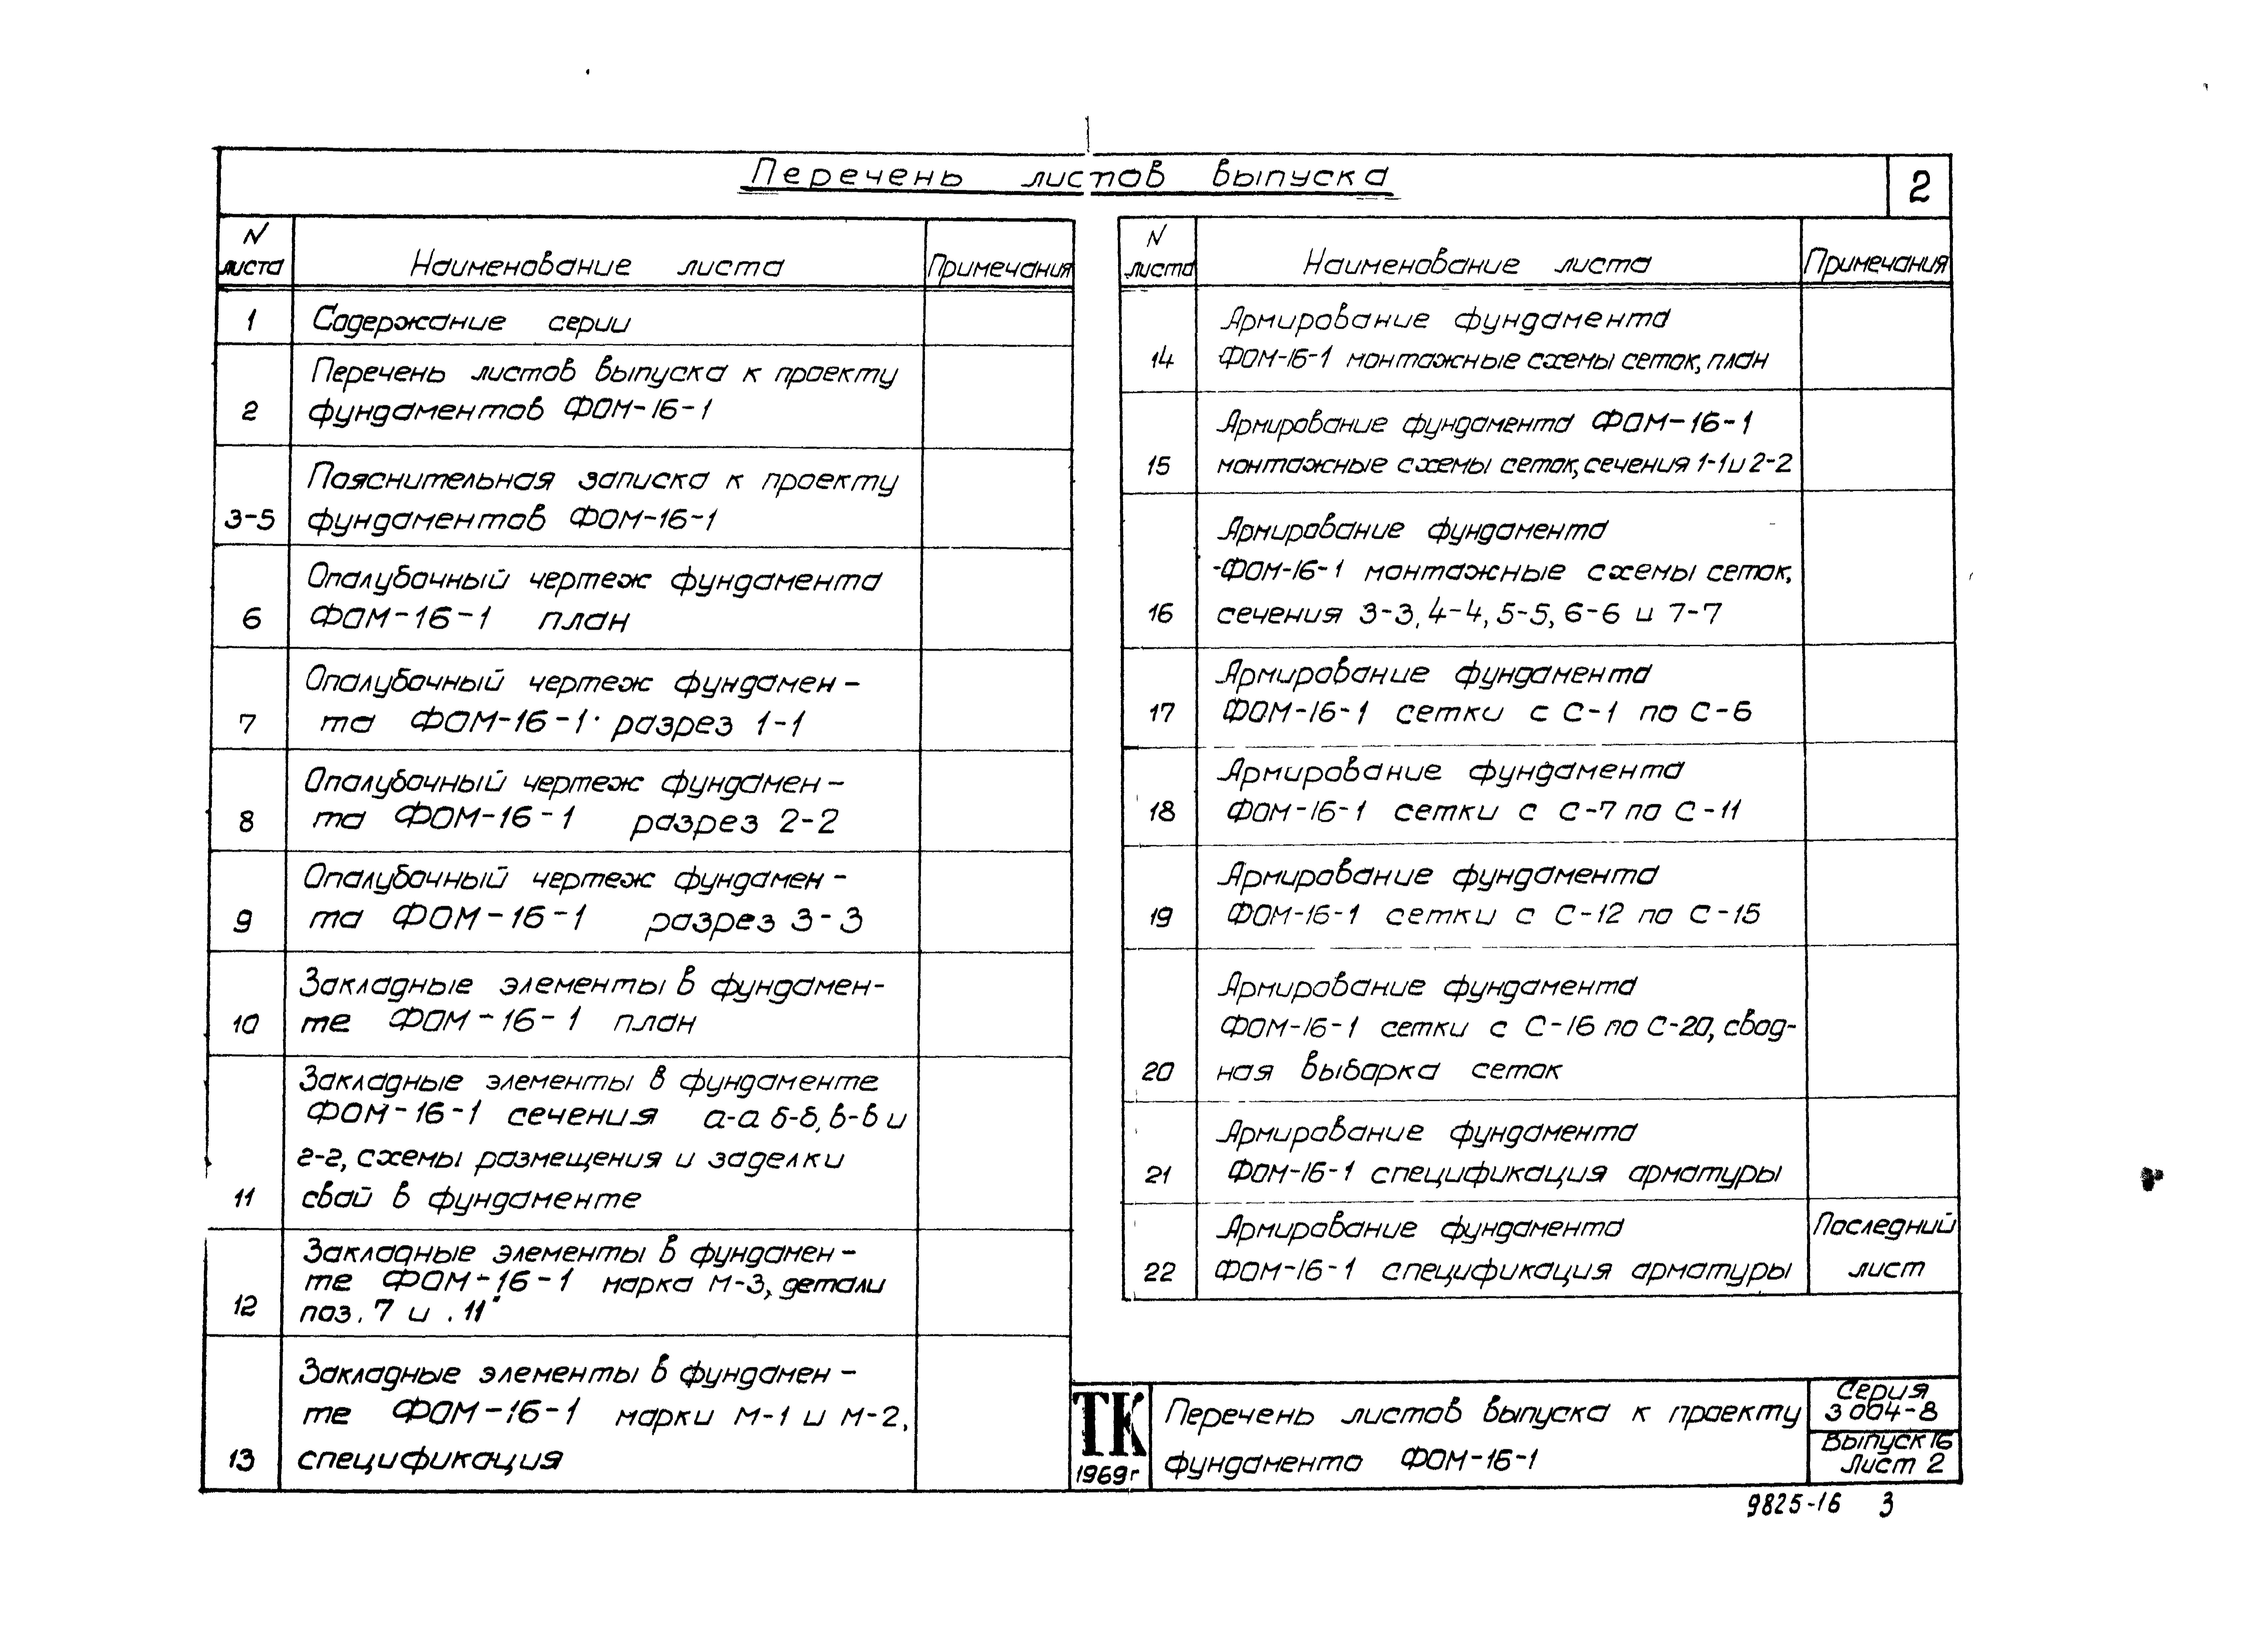 Перечень листов выпуска
2
N листа
Наименование листа
Примечания
1
Содержание серии
2
Перечень листов выпуска к проекту
фундаментов ФОМ-16-1
3-5
Пояснительная записка к проекту
фундаментов ФОМ-16-1
6
Опалубочный чертеж фундамента
ФОМ-16-1 план
7
Опалубочный чертеж фундамен-
та ФОМ-16-1. разрез 1-1
8
Опалубочный чертеж фундамен-
та ФОМ-16-1 разрез 2-2
9
Опалубочный чертеж фундамен-
та ФОМ-16-1 разрез 3-3
10
Закладные элементы в фундамен-
те ФОМ-16-1 план
11
Закладные элементы в фундаменте
ФОМ-16-1 сечения а-а б-б, в-в и
г-г, схемы размещения и заделки
свай в фундаменте
12
Закладные элементы в фундамен-
те ФОМ-16-1 марка М-3, детали
поз. 7 и .11"
13
Закладные элементы в фундамен-
те ФОМ-16-1 марки М-1 и М-2,
спецификация
N листа
Наименование листа
Примечания
14
Армирование фундамента
ФОМ-16-1 монтажные схемы сеток, план
15
Армирование фундамента ФОМ-16-1
монтажные схемы сеток, сечения 1-1 и 2-2
16
Армирование фундамента
-ФОМ-16-1 монтажные схемы сеток,
сечения 3-3, 4-4, 5-5, 6-6 и 7-7
17
Армирование фундамента
ФОМ-16-1 сетки с С-1 по С-6
18
Армирование фундамента
ФОМ-16-1 сетки с С-7 по С-11
19
Армирование фундамента
ФОМ-16-1 сетки с С-12 по С-15
20
Армирование фундамента
ФОМ-16-1 сетки с С-16 по С-20, свод-
ная выборка сеток
21
Армирование фундамента
ФОМ-16-1 спецификация арматуры
22
Армирование фундамента
ФОМ-16-1 спецификация арматуры
Последний
лист
ТК
1969г
Перечень листов выпуска к проекту
фундамента ФОМ-16-1
Серия
3 004-8
Выпуск 16
Лист 2
9825-16 3